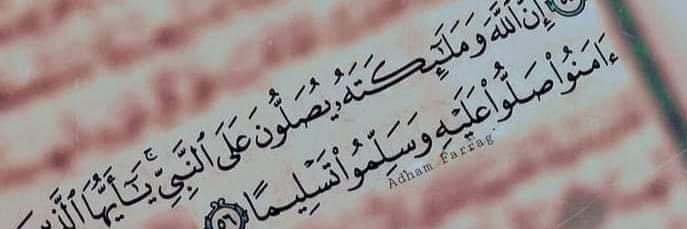 إِنَّ ٱللَّهَ وَمَلَـٰٓئِكَتَهُۥ يُصَلُّونَ عَلَى ٱلنَّبِىِّ ۚ يَـٰٓأَيُّهَا ٱلَّذِينَ
ءَامَنُوا۟ صَلُّوا۟ عَلَيْهِ وَسَلِّمُوا۟ تَسْلِيمًا ٥٦
Adham Farrag